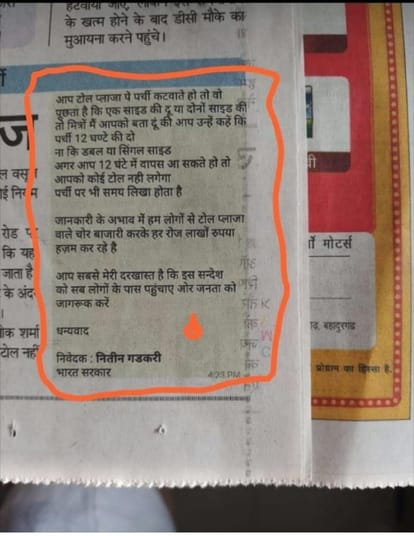 हटवाया जाए, लेकिन
के खत्म होने के बाद डीसी मौके का
मुआयना करने पहुंचे।
आप टोल प्लाजा पे पर्ची कटवाते हो तो वो
पूछता है कि एक साइड की दू या दोनों साइड की
तो मित्रों मैं आपको बता दूं की आप उन्हें कहें कि
पर्ची 12 घण्टे की दो
ना कि डबल या सिंगल साइड
अगर आप 12 घंटे में वापस आ सकते हो तो
आपको कोई टोल नही लगेगा
पर्ची पर भी समय लिखा होता है
जानकारी के अभाव में हम लोगों से टोल प्लाजा
वाले चोर बाजारी करके हर रोज लाखों रुपया
हज़म कर रहे है
आप सबसे मेरी दरखास्त है कि इस सन्देश
को सब लोगों के पास पहुंचाए ओर जनता को
जागरूक करें
धन्यवाद
निवेदक : नितीन गडकरी
भारत सरकार
4:23 PM
ज
रोड
कि यह
जाता है
के अंद
शर्मा
टोल नहीं
मोटर्स
बहादुरगढ़
प्रोग्राम का हिस्सा है.